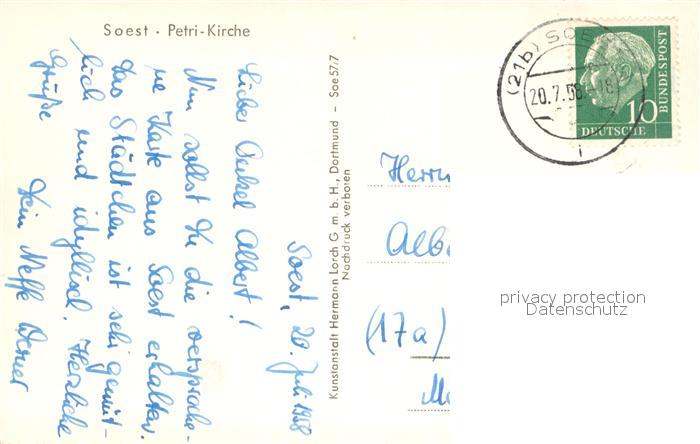 Soest · Petri-Kirche
Soest, 20. Juli 1958
Lieber Onkel Albert!
Nun sollst Du die versproche-
ne Karte aus Soest erhalten.
Das Städtchen ist sehr gemüt-
lich und idyllisch. Herzliche
Grüße
Dein Neffe Werner
Kunstanstalt Hermann Lorch G.m.b.H., Dortmund – Soe57/7
Nachdruck verboten
(21b) SOEST
20.7.58
i
10
DEUTSCHE
BUNDESPOST
Herrn
Alb
(17a)
privacy protection
Datenschutz